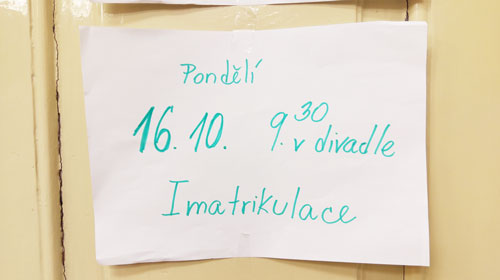 Pondělí
16. 10. 9.30 v divadle
Imatrikulace